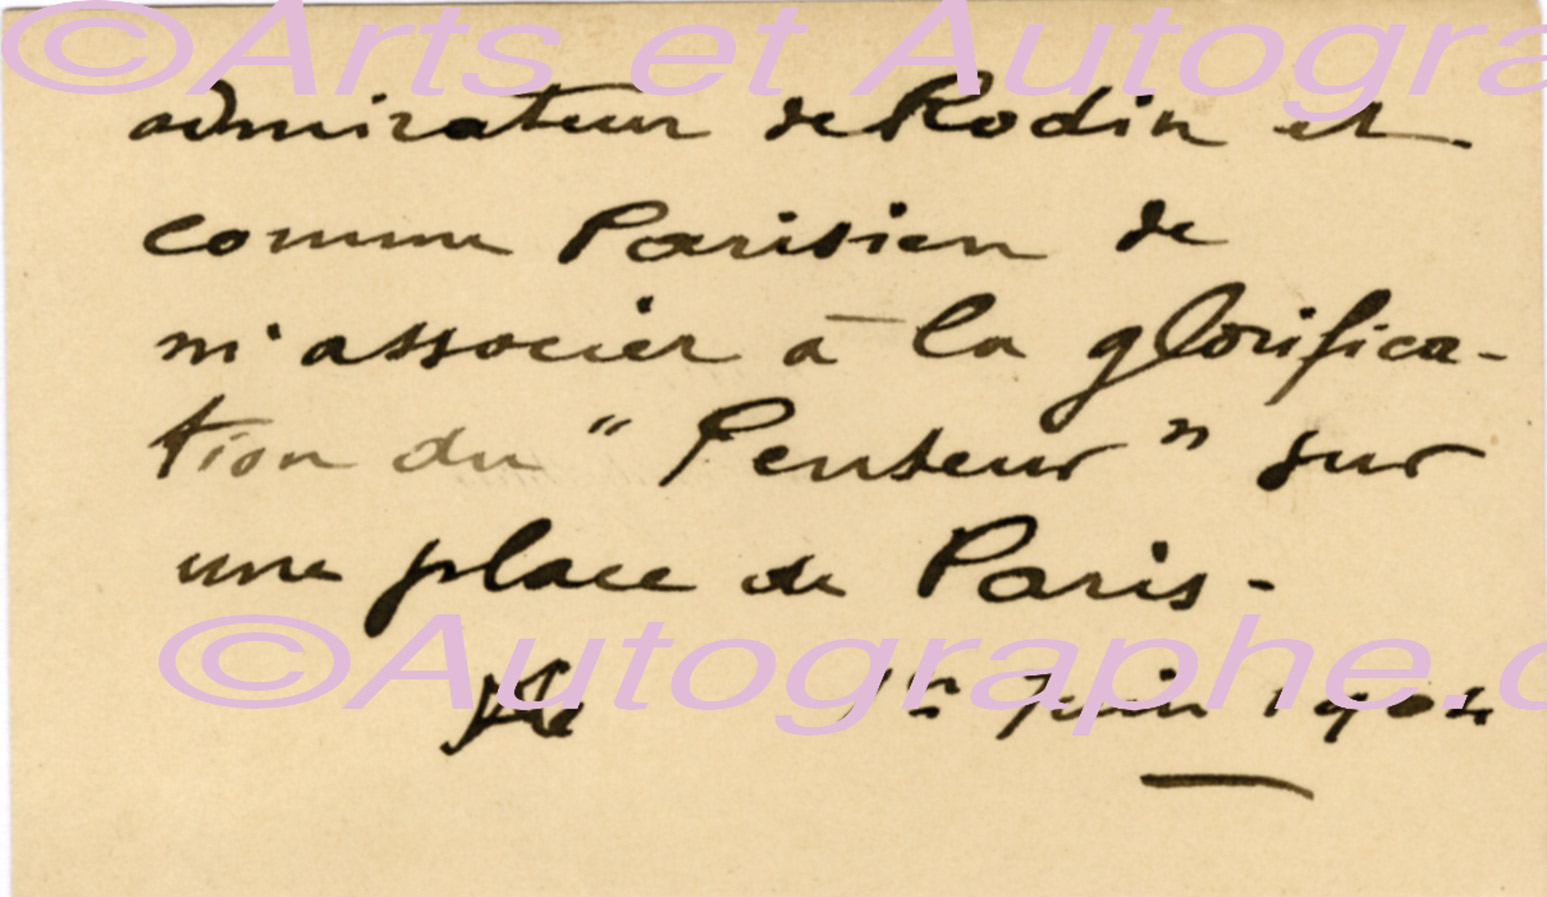 ©Arts et Autogra
admirateur de Rodin et
comme Parisien de
m'associer à la glorifica-
tion du "Penseur" sur
une place de Paris.
©Autographe.c
1er Juin 1904